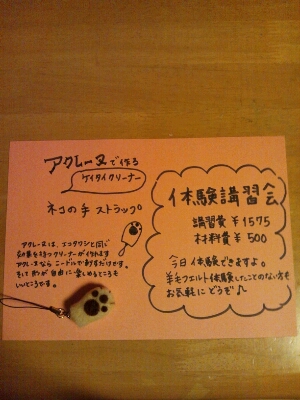 アクレーヌで作る
ケイタイクリーナー
ネコの手 ストラップ。
アクレーヌは、エコタワシと同じ
効果を持つクリーナーが作れます
アクレーヌなら ニードルで刺すだけです。
そして 形が 自由に 楽しめるところも
いいところです。
体験講習会
講習費 ¥1575
材料費 ¥500
今日 体験できますよ。
羊毛フェルト体験したことのない方も
お気軽に どうぞ♪